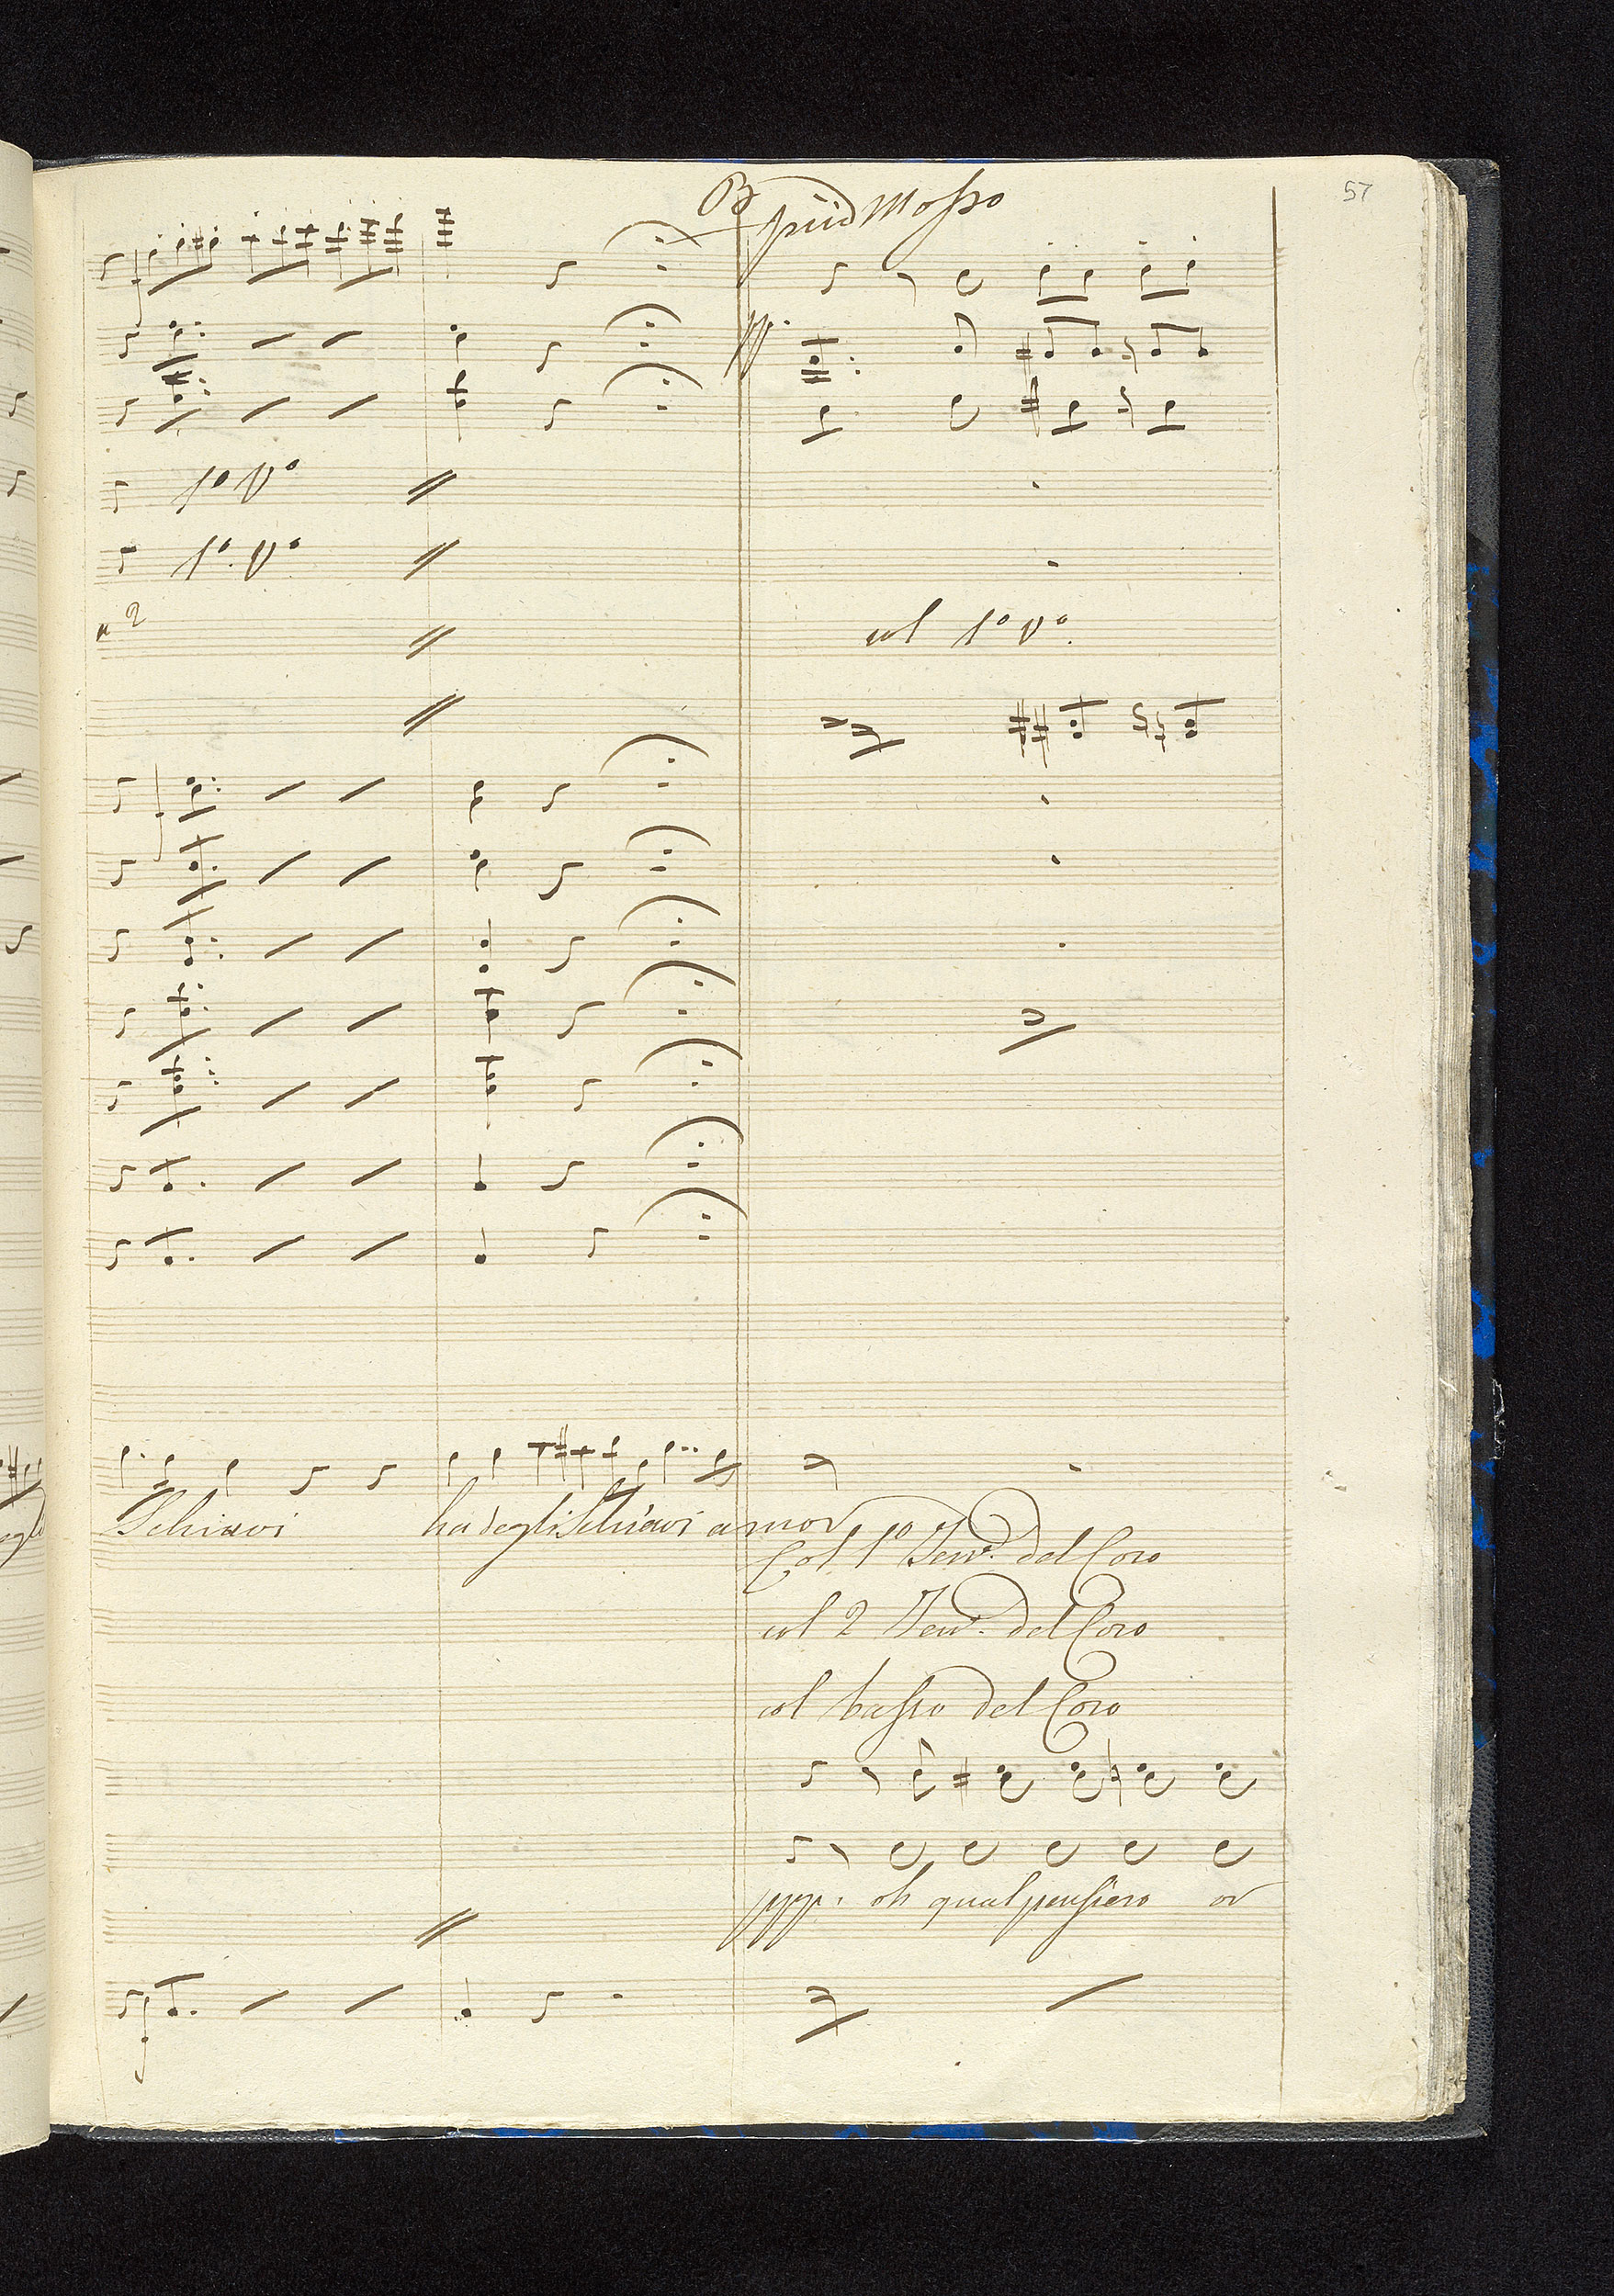 57
B
più Mosso
pp.
1º Vº
1º. Vº.
a 2
col 1º Vº.
Schiavi ha degli Schiavi amor
Col 1º Ten.e del Coro
col 2 Ten.e del Coro
col basso del Coro
ppp. oh qual pensiero or